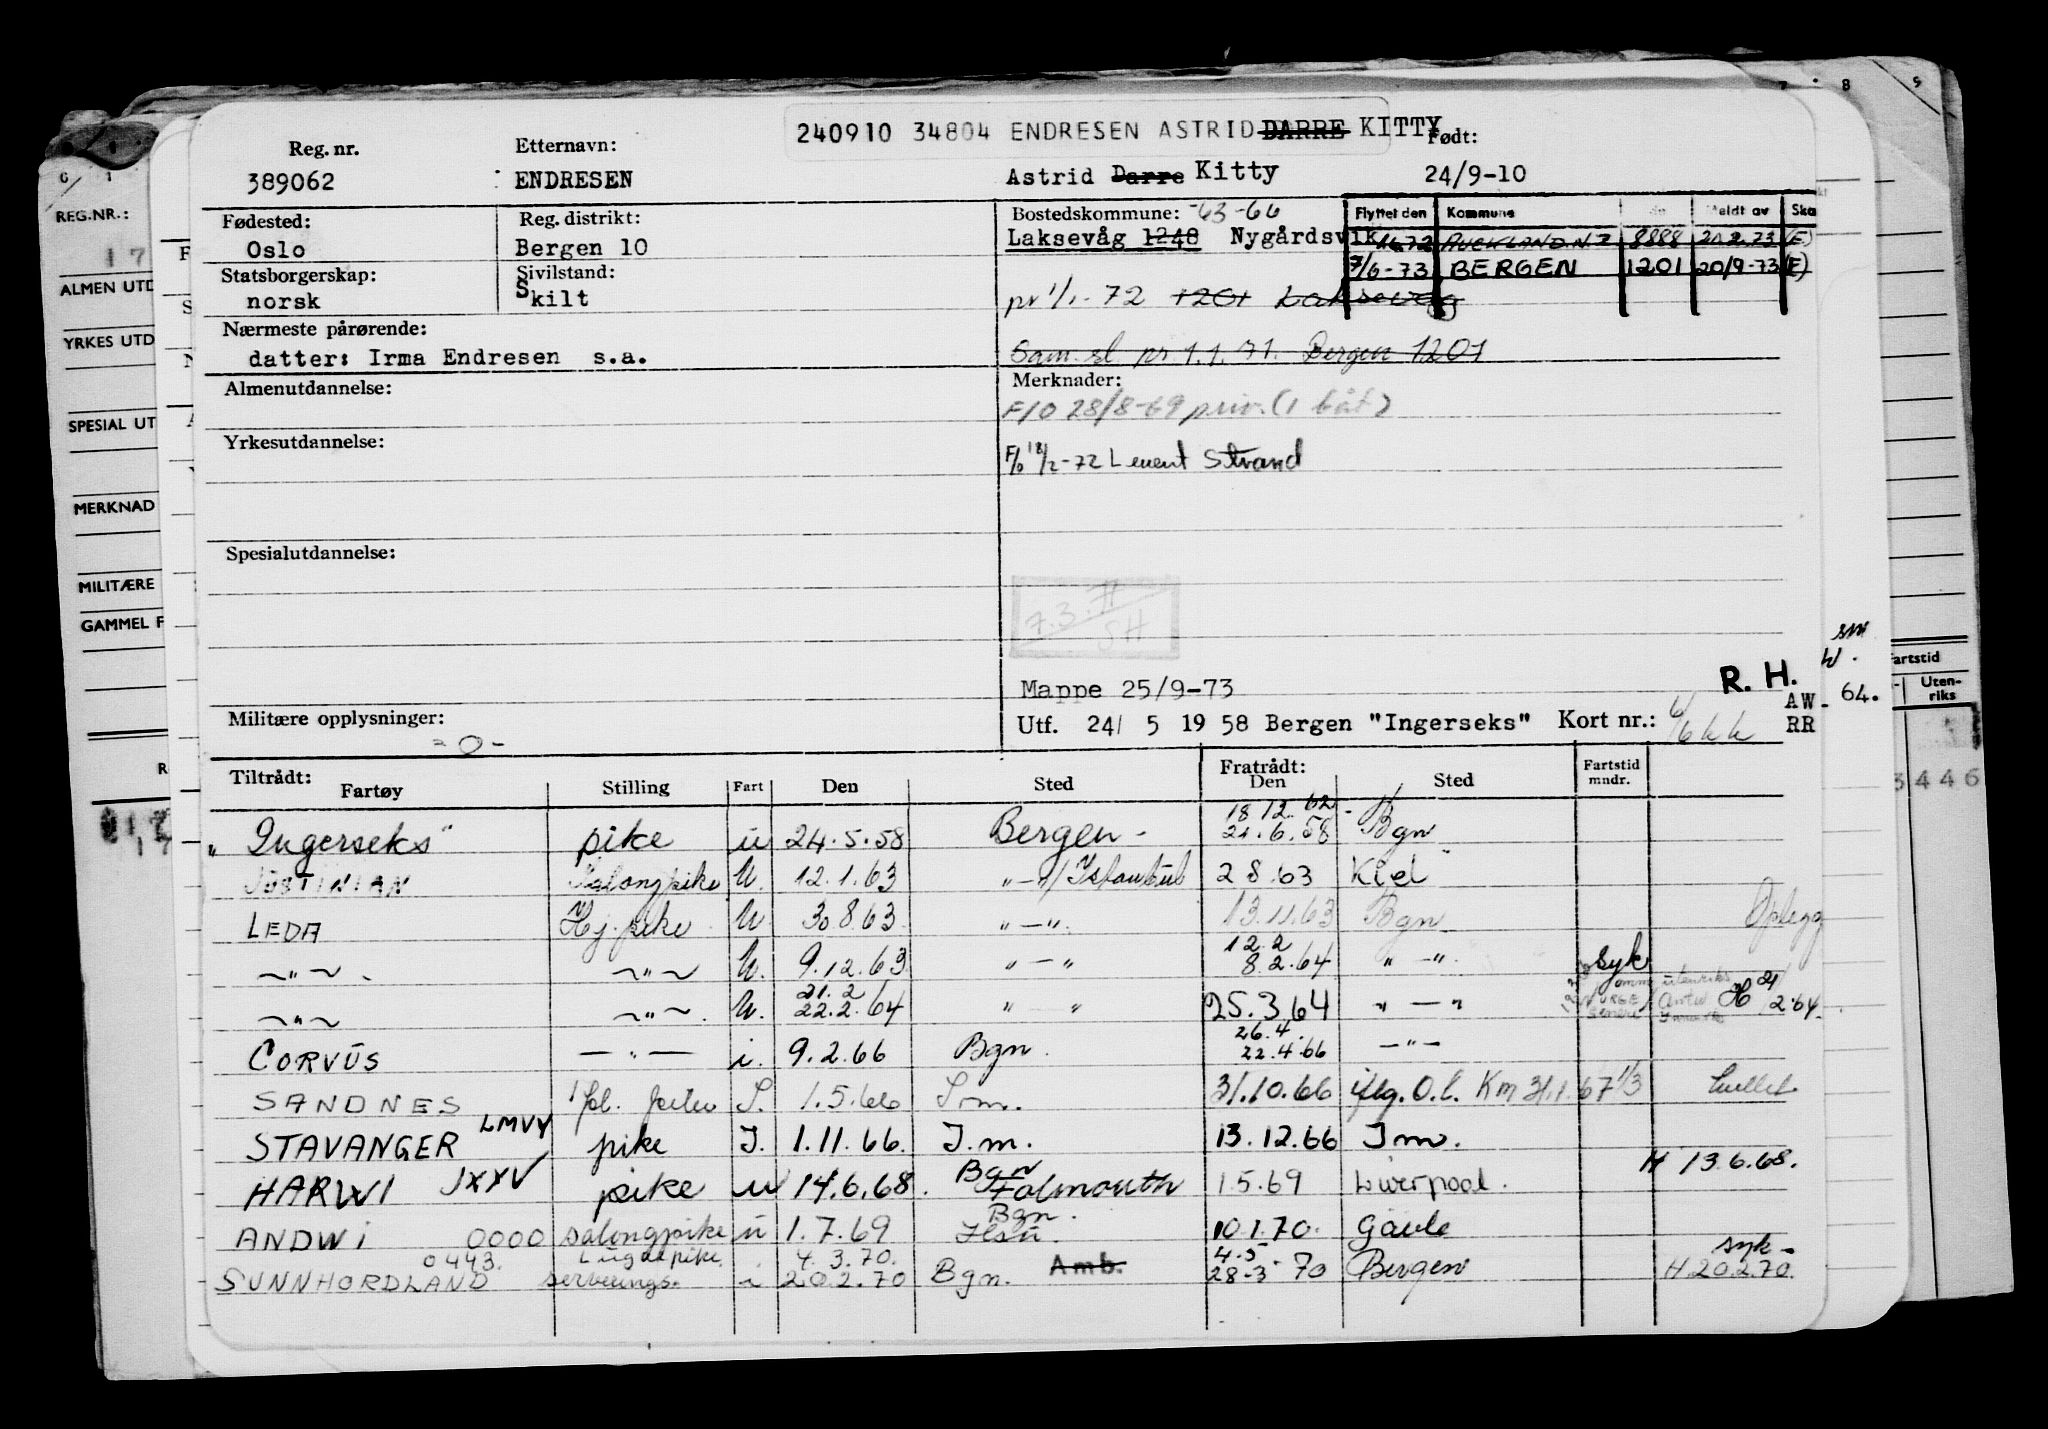 240910 34804 ENDRESEN ASTRID DARRE KITTY
Reg. nr. Etternavn: Født:
389062 ENDRESEN Astrid Darre Kitty 24/9-10
Fødested: Reg. distrikt: Bostedskommune: -63-66
Oslo Bergen 10 Laksevåg 1248 Nygårdsvik
Flyttet den Kommune Meldt av Ska
1.6.72 AUCKLAND N.Z 8888 20.2.73 (E)
7/6-73 BERGEN 1201 20/9-73 (E)
Statsborgerskap: Sivilstand:
norsk Skilt
pr 1/1-72 1201 Laksevåg
Nærmeste pårørende:
datter: Irma Endresen s.a.
Sam. sl. pr. 1.1.71. Bergen 1201
Almenutdannelse: Merknader:
F/O 28/8-69 priv. (1 båt)
Yrkesutdannelse:
F/o 18/2-72 Levent Strand
Spesialutdannelse:
7.3.
SH
R. H.
Mappe 25/9-73
AW
Militære opplysninger: Utf. 24/ 5 19 58 Bergen "Ingerseks" Kort nr.: RR
-0-
Tiltrådt: Fratrådt: Fartstid
Fartøy Stilling Fart Den Sted Den Sted mndr.
18.12.62
"Ingerseks" pike u 24.5.58 Bergen - 21.6.58 Bgn
JUSTINIAN Salongpike U. 12.1.63 "-"/Istanbul 2 8.63 Kiel
LEDA Hj. pike U 30.8.63 "-" 13.11.63 Bgn Oplegg
12.2
~"~ ~"~ U. 9.12.63 "-" 8.2.64 "-" syk
21.2
~"~ ~"~ U. 22.2.64 " " 25.3.64 "-" 2.64
26.4.
CORVUS -"- i. 9.2.66 Bgn. 22.4.66 -"-
SANDNES S. 1.5.66 31.10.66 O.l. Km 31.1.67 1/3
STAVANGER LMVY pike J. 1.11.66. J.m. 13.12.66 Jm.
H 13.6.68.
HARWI JXXV pike u 14.6.68. Bgn Falmouth 1.5.69 Liverpool.
ANDWI 0000 salongpike u 1.7.69 Bgn. 10.1.70. Gävle
0443. Lugarpike 4.3.70. 4.5 syk-
SUNNHORDLAND serverings. i 20.2.70 Bgn. Amb. 28-3-70 Bergen H 20.2.70.
REG.NR.:
17
ALMEN UTD
YRKES UTD
SPESIAL UT
MERKNAD
MILITÆRE
GAMMEL F
artstid
Uten-
riks
64.
3446